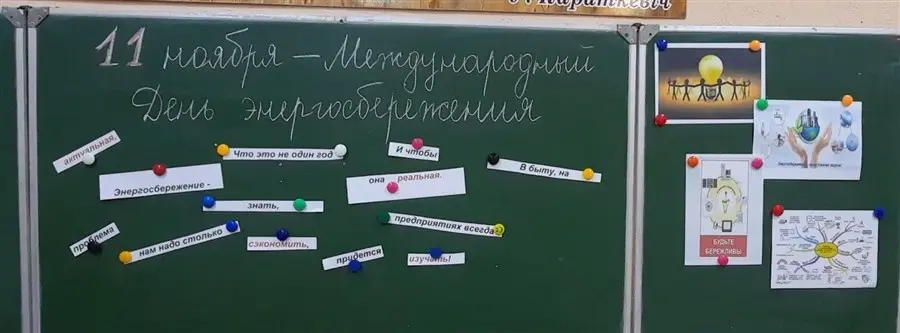 Караткевіч
11 ноября – Международный
День энергосбережения
актуальная,
Что это не один год
И чтобы
В быту, на
Энергосбережение -
она реальная.
знать,
предприятиях всегда
проблема
нам надо столько
сэкономить,
придется
изучать!
БУДЬТЕ
БЕРЕЖЛИВЫ